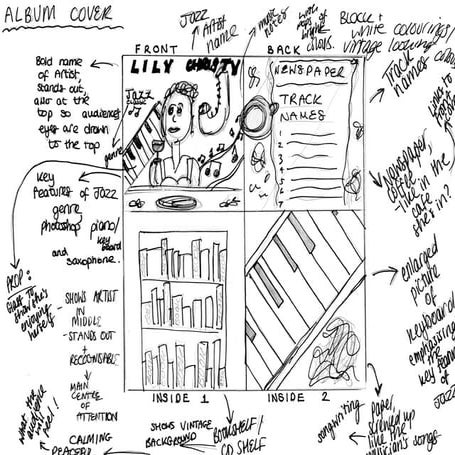 ALBUM COVER
JAZZ
ARTIST
name
music
notes
BLOCK +
white colourings/
vintage looking
FRONT
BACK
Track
names
Bold name
of Artist,
stands out,
also at the
top so audiences
eyes are drawn
to the top
LILY CHRISTY
Jazz
genre
NEWSPAPER
TRACK
NAMES
1
2
3
4
5
6
7
Newspaper,
coffee
-like in the
cafe
she's in?
Key
features of JAZZ
genre,
photoshop piano/
keyboard
and
saxophone.
PROP:
Glass to
show she's
enjoying
herself
- SHOWS ARTIST
IN
MIDDLE
- STANDS OUT
+
RECOGNISABLE
MAIN
CENTRE OF
ATTENTION
CALMING
PEACEFUL
what the
audience
will
feel!
enlarged
picture
of
Keyboard
emphasising
the
key feature
of
JAZZ
INSIDE 1
INSIDE 2
SHOWS VINTAGE
BACKGROUND
BOOKSHELF/
CD SHELF
songwriting
Paper
screwed up
like the
musician's songs